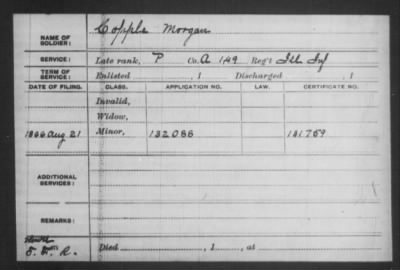 NAME OF SOLDIER: Copple Morgan
SERVICE: Late rank, P Co. A 149 Reg't Ill Inf
TERM OF SERVICE: Enlisted , 1 Discharged , 1
DATE OF FILING. CLASS. APPLICATION NO. LAW. CERTIFICATE NO.
Invalid,
Widow,
1866 Aug 21 Minor, 132088 131759
ADDITIONAL SERVICES:
REMARKS:
Died , 1 , at